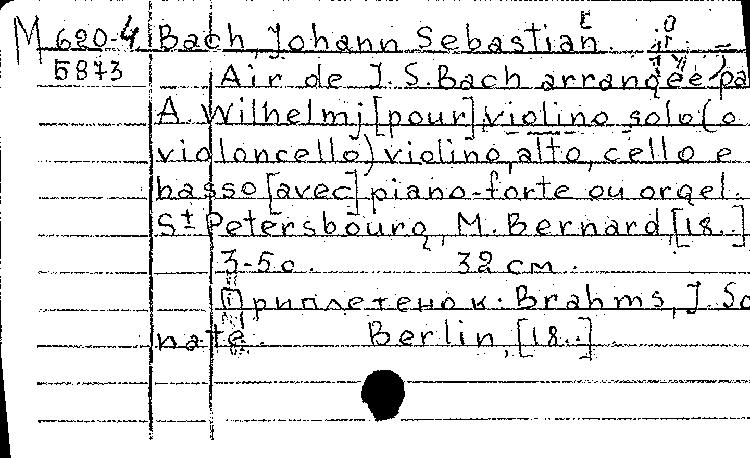 М 620-4 Bach, Johann Sebastian.
5873 Air de J. S. Bach arrangée pa
A. Wilhelmj [pour] violino solo (o
violoncello) violino, alto, cello e
basso [avec] piano-forte ou orgel.
St Petersbourg, M. Bernard, [18..]
3-5 c. 32 см.
Приплетено к: Brahms, J. So
nate. Berlin, [18..]